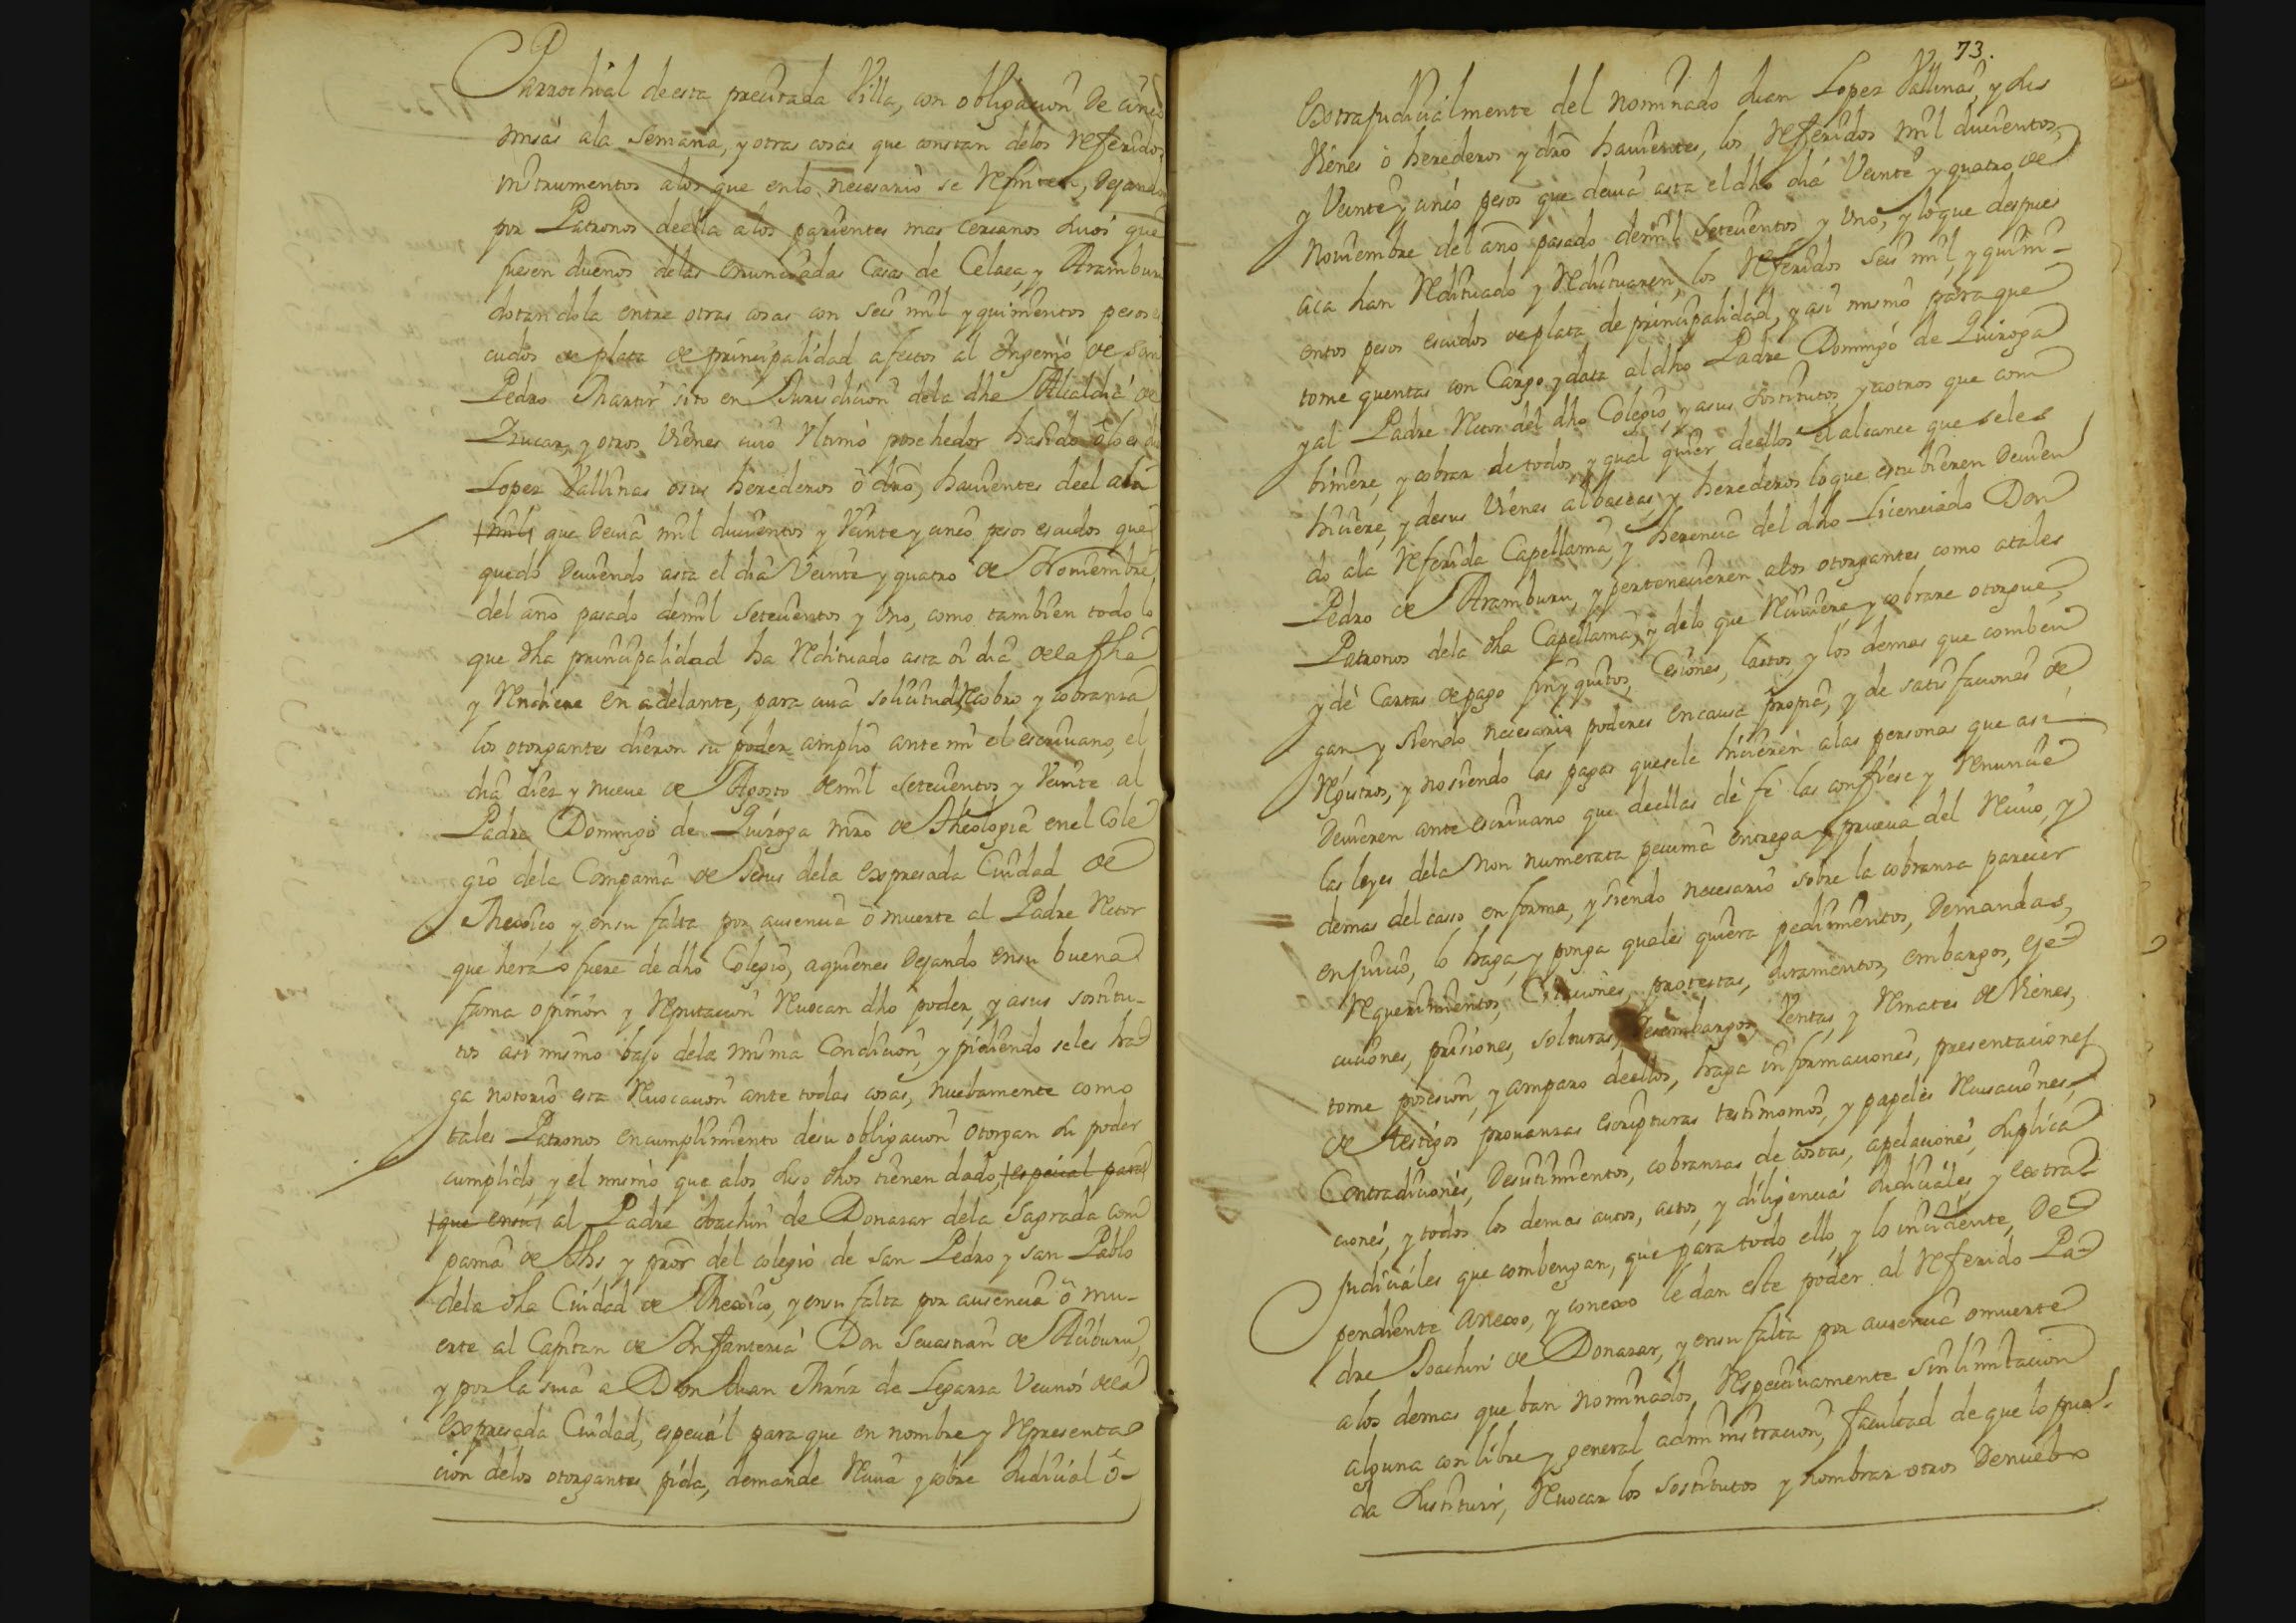 Parrochial de esta precitada Villa, con obligacion de cinco
misas ala semana, y otras cosas que constan delos referidos
instrumentos alos que en lo necesario se refieren, Dejando
por Patronos deella alos parientes mas cercanos suios que
fuesen dueños delas enunciadas Casas de Celaea, y Aramburu
dotandola entre otras cosas con seis mil y quinientos pesos es
cudos de plata de principalidad afectos al Ingenio de San
Pedro Martir sito en Jurisdicion dela dha Alcaldia de
Izucar, y otros Vienes cuio Vltimo posehedor ha sido ò lo es
Lopez Vallinas o sus herederos ò dro, havientes de el
mil que devia mil ducientos y Veinte y cinco pesos escudos que
quedò deviendo asta el dia Veinte y quatro de Noviembre
del año pasado demil setecientos y Vno, como tambien todo lo
que dha principalidad ha redituado asta oi dia dela fha
y rindiere en adelante, para cuia solicitud, recobro y cobranza
los otorgantes dieron su poder amplio ante mi el escrivano, el
dia diez y nueve de Agosto demil setecientos y Veinte al
Padre Domingo de Quiroga mro de Theologia en el Cole
gio dela Compania de Jesus dela expresada Ciudad de
Mexico y en su falta por ausencia ò muerte al Padre Retor
que herá o fuere de dho Colegio, aquienes Dejando en su buena
fama opinion y reputacion revocan dho poder, y asus sostitu-
tos asi mismo bajo dela misma Condicion, y pidiendo seles ha
ga notorio esta revocacion ante todas cosas, nuebamente como
tales Patronos en cumplimiento desu obligacion otorgan su poder
cumplido, y el mismo que alos suso dhos tienen dado, especial para
que en su al Padre Joachin de Donazar dela Sagrada com
pania de Jhs, y pror del colegio de san Pedro y san Pablo
dela dha Ciudad de Mexico, y en su falta por ausencia ò mu-
erte al Capitan de Infanteria Don Sevastian de Aciburu,
y por la suia a Don Juan Mrnz de Legarza Vecinos dela
expresada Ciudad, especial para que en nombre y representa
cion delos otorgantes pida, demande reciva y cobre Judicial ò-
73.
Extrajudicialmente del nominado Juan Lopez Vallinas, y sus
Vienes ò herederos y dro havientes, los referidos mil ducientos,
y Veinte y cinco pesos que devia asta el dho dia Veinte y quatro de
Noviembre del año pasado demil setecientos y Vno, y lo que despues
aca han redituado y redituaren, los referidos seis mil, y quini-
entos pesos escudos de plata de principalidad, y asi mismo para que
tome quentas con Cargo y data al dho Padre Domingo de Quiroga
y al Padre Retor del dho Colegio y asus sostitutos y aotros que com
biniere, y cobrar de todos y qual quier deellos el alcance que seles
hiciere, y desus Vienes albaceas y herederos lo que estubieren Devien
do ala referida Capellania, y herencia del dho Licenciado Don
Pedro de Aramburu, y pertenecieren alos otorgantes como atales
Patronos dela dha Capellania, y delo que reciviere y cobrare otorgue,
y dè Cartas de pago finyquitos, Cesiones, lastos, y los demas que comben
gan y siendo necesario poderes en causa propia, y de satisfaciones de
registros, y no siendo las pagas quesele hicieren alas personas que asi
Devieren ante escrivano que deellas dè fe las confiese y renuncie
las leyes dela non numerata pecunia entrega y prueva del recivo, y
demas del casso en forma, y siendo necesario sobre la cobranza parecer
en juicio, lo haga, y ponga quales quiera pedimientos, Demandas,
requerimientos, Citaciones, protestas, Juramentos, embargos, eje
cuciones, prisiones, solturas, desembargos, Ventas, y remates de Vienes,
tome posesion, y amparo deellos, haga informaciones, presentaciones
de testigos provanzas escripturas testimonios, y papeles recusaciones,
Contradiciones, Desistimientos, cobranzas de costas, apelaciones, suplica
ciones, y todos los demas autos, actos y diligencias Judiciales y extra
judiciales que combengan, que para todo ello, y lo incidente, De
pendiente anexo, y conexo le dan este poder al referido Pa
dre Joachin de Donazar, y en su falta por ausencia o muerte
alos demas que ban nominados, respectivamente sin limitacion
alguna con libre y general administracion, facultad de que lo pue-
da sustituir, revocar los sostitutos y nombrar otros Denuebo